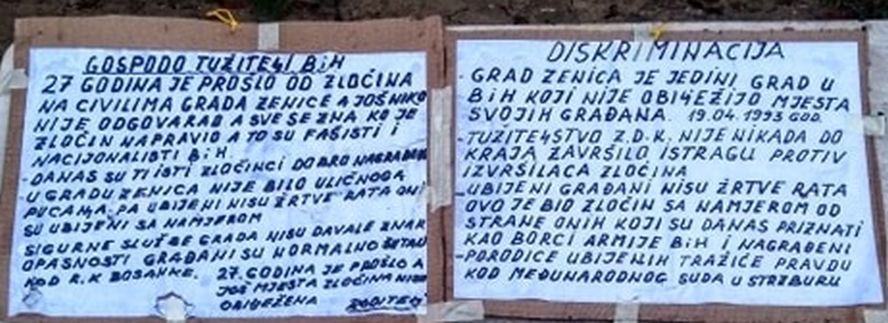 GOSPODO TUŽITE4I BiH
27 GODINA JE PROŠLO OD ZLOĆINA
NA CIVILIMA GRADA ZENICE A JOŠ NIKO
NIJE ODGOVARAO A SVE SE ZNA KO JE
ZLOĆIN NAPRAVIO A TO SU FAŠISTI I
NACIJONALISTI BiH.
-DANAS SU TI ISTI ZLOČINCI DOBRO NAGRAĐENI
-U GRADU ZENICA NIJE BILO ULIČNOGA
PUCANJA, PA UBIJENI NISU ŽRTVE RATA ONI
SU UBIJENI SA NAMJEROM
SIGURNE SLUŽBE GRADA NISU DAVALE ZNAK
OPASNOSTI GRAĐANI SU NORMALNO ŠETALI
KOD R.K BOSANKE. 27. GODINA JE PROŠLO A
JOŠ MJESTA ZLOČINA NISU
OBI4EŽENA RODITE4I
DISKRIMINACIJA
-GRAD ZENICA JE JEDINI GRAD U
BiH KOJI NIJE OBI4EŽIJO MJESTA
SVOJIH GRAĐANA. 19.04.1993 GOD.
-TUŽITE4STVO Z.D.K. NIJE NIKADA DO
KRAJA ZAVRŠILO ISTRAGU PROTIV
IZVRŠILACA ZLOČINA
-UBIJENI GRAĐANI NISU ŽRTVE RATA
OVO JE BIO ZLOČIN SA NAMJEROM OD
STRANE ONIH KOJI SU DANAS PRIZNATI
KAO BORCI ARMIJE BiH I NAGRAĐENI
-PORODICE UBIJENIH TRAŽIĆE PRAVDU
KOD MEĐUNARODNOG SUDA U STRZBURU